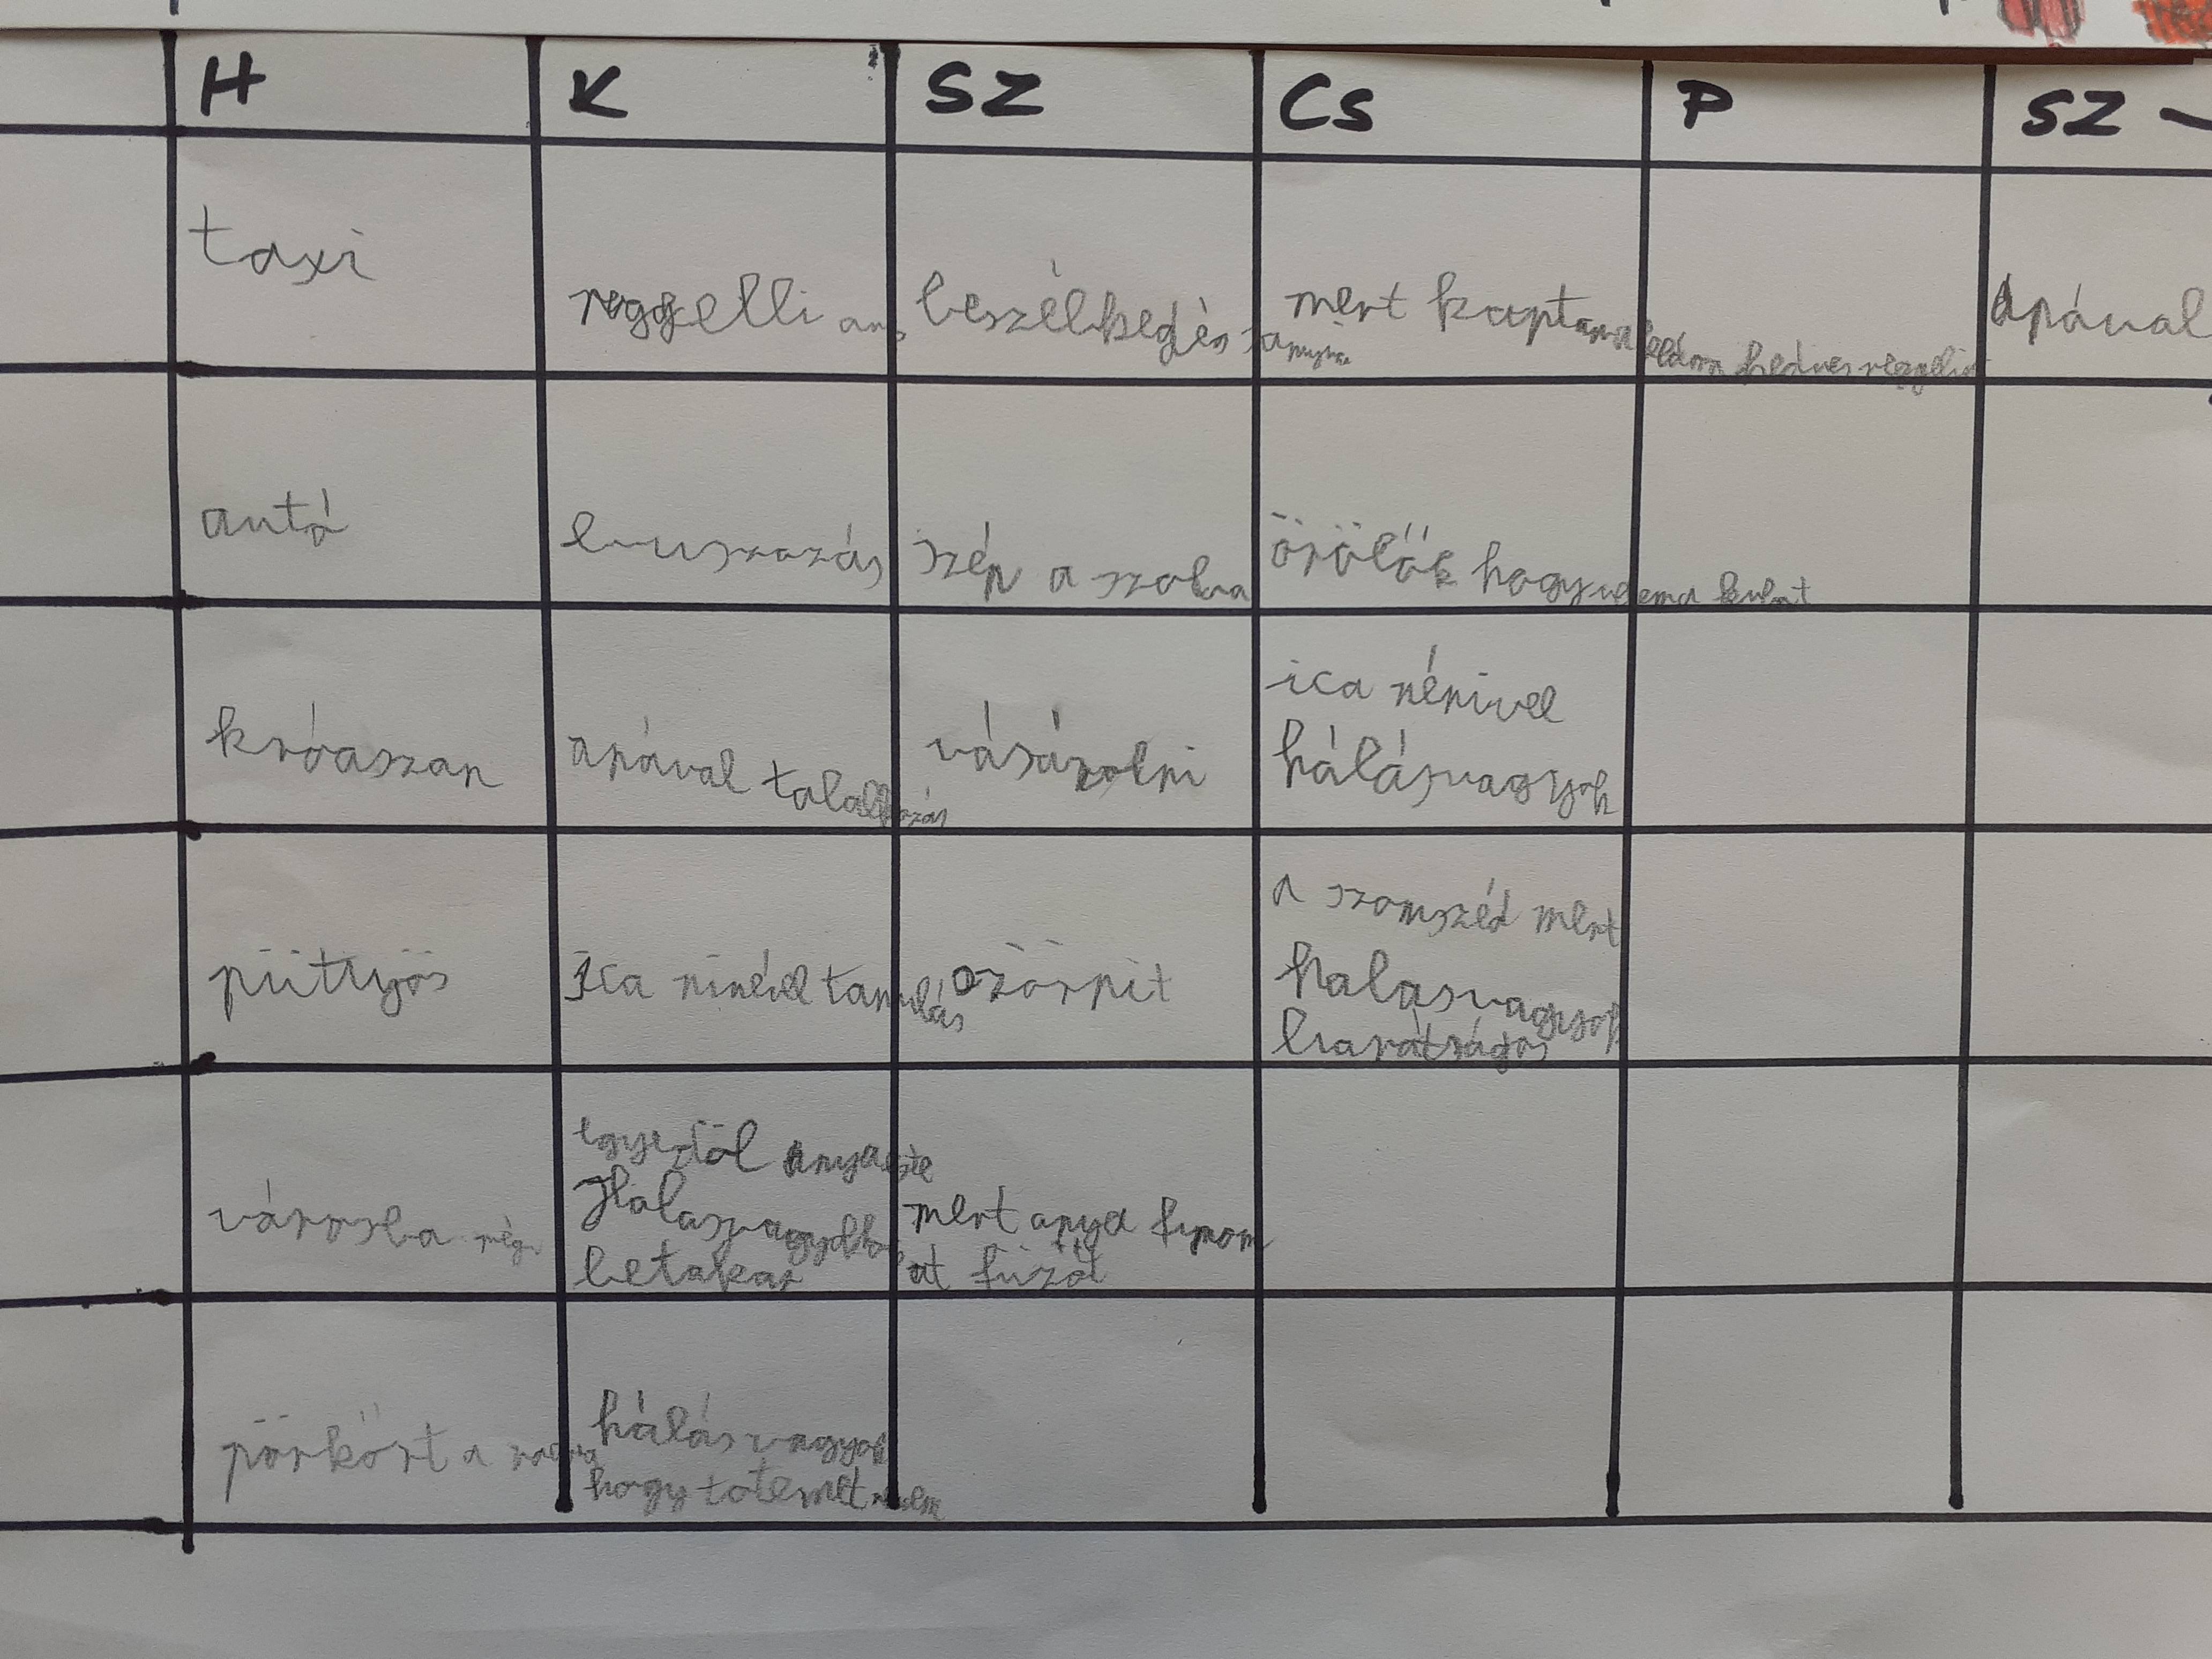 H K SZ CS P SZ
taxi
reggelli
beszélkegés
mert kaptam
hedves reggelit
Apával
autó
buszozás
szép a szoba
örölök hogy
króaszan
apával talalkozás
vásárolni
ica nénivel
hálásvagyok
püttyös
Ica ninévl tanulás
szörpit
a szomszéd mert
halasvagyok
barátságos
városba még
egyedöl anyaeste
Halasvagyok
betakar
mert anya finom
at füzöt
pörkört a
hálásvagyok
hogy totemet